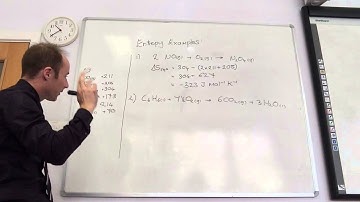 Entropy Examples
1) 2 NO(g) + O₂(g) → N₂O₄(g)
ΔSsys = 304 - (2x211 + 205)
= 304 - 627
= -323 J mol⁻¹ K⁻¹
2) C₆H₆(l) + 7½O₂(g) → 6CO₂(g) + 3H₂O(l)
+211
+205
+304
+173
+214
+70